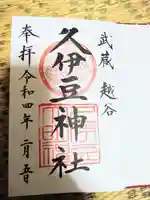 武蔵 越谷
久伊豆神社
奉拝 令和四年二月五日